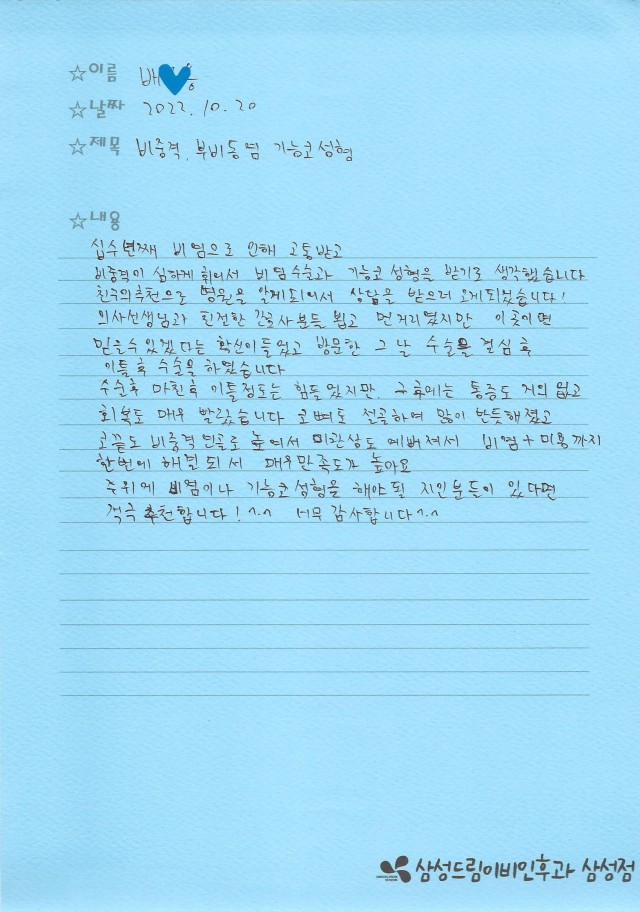 ☆이름 배
☆날짜 2022. 10. 20
☆제목 비중격, 부비동염 기능코성형
☆내용
십수년째 비염으로 인해 고통받고
비중격이 심하게 휘어서 비염수술과 기능코성형을 받기로 생각했습니다
친구의추천으로 병원을 알게되어서 상담을 받으러 오게되었습니다!
의사선생님과 친절한 간호사분들 뵙고 먼거리였지만 이곳이면
믿을수있겠다는 확신이들었고 방문한 그날 수술을 결심 후
이틀 후 수술을 하였습니다
수술후 마친후 이틀정도는 힘들었지만, 그후에는 통증도 거의 없고
회복도 매우 빨랐습니다 코뼈도 절골하여 많이 반듯해졌고
코끝도 비중격 연골로 높여서 미관상도 예뻐져서 비염+미용까지
한번에 해결되서 매우만족도가 높아요
주위에 비염이나 기능코성형을 해야될 지인분들이 있다면
적극 추천합니다! ^.^ 너무 감사합니다^.^
삼성드림이비인후과 삼성점